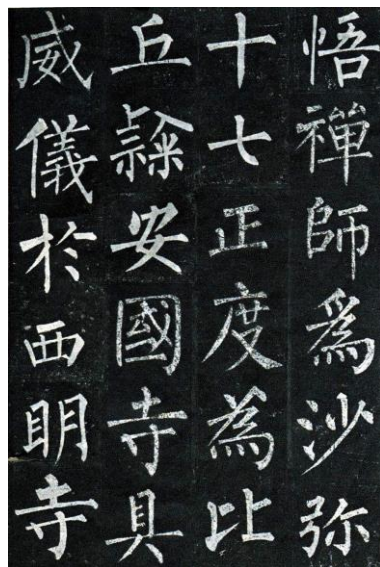 悟禪師為沙弥
十七正度為比
丘𥘉安國寺具
威儀於西明寺